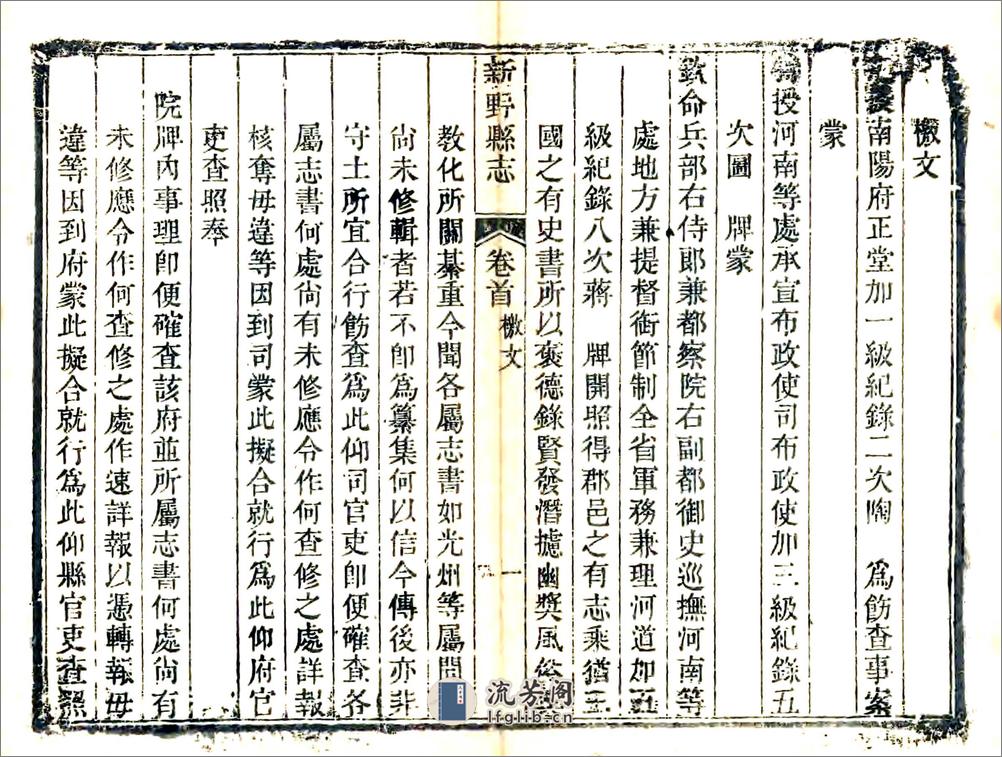 檄文
南陽府正堂加一級紀錄二次陶　爲飭查事案
蒙
授河南等處承宣布政使司布政使加三級紀錄五
次圖　牌蒙
欽命兵部右侍郎兼都察院右副都御史巡撫河南等
處地方兼提督銜節制全省軍務兼理河道加五
級紀錄八次蔣　牌開照得郡邑之有志乘猶之
國之有史書所以褒德錄賢發潛攄幽獎風
新野縣志　卷首　檄文　一
教化所關綦重今聞各屬志書如光州等屬間
尚未修輯者若不卽爲纂集何以信今傳後亦非
守土所宜合行飭查爲此仰司官吏卽便確查各
屬志書何處尙有未修應令作何查修之處詳報
核奪毋違等因到司蒙此擬合就行爲此仰府官
吏查照奉
院牌內事理卽便確查該府並所屬志書何處尙有
未修應令作何查修之處作速詳報以憑轉報毋
違等因到府蒙此擬合就行爲此仰縣官吏查照
流芳阁
lfglib.cn